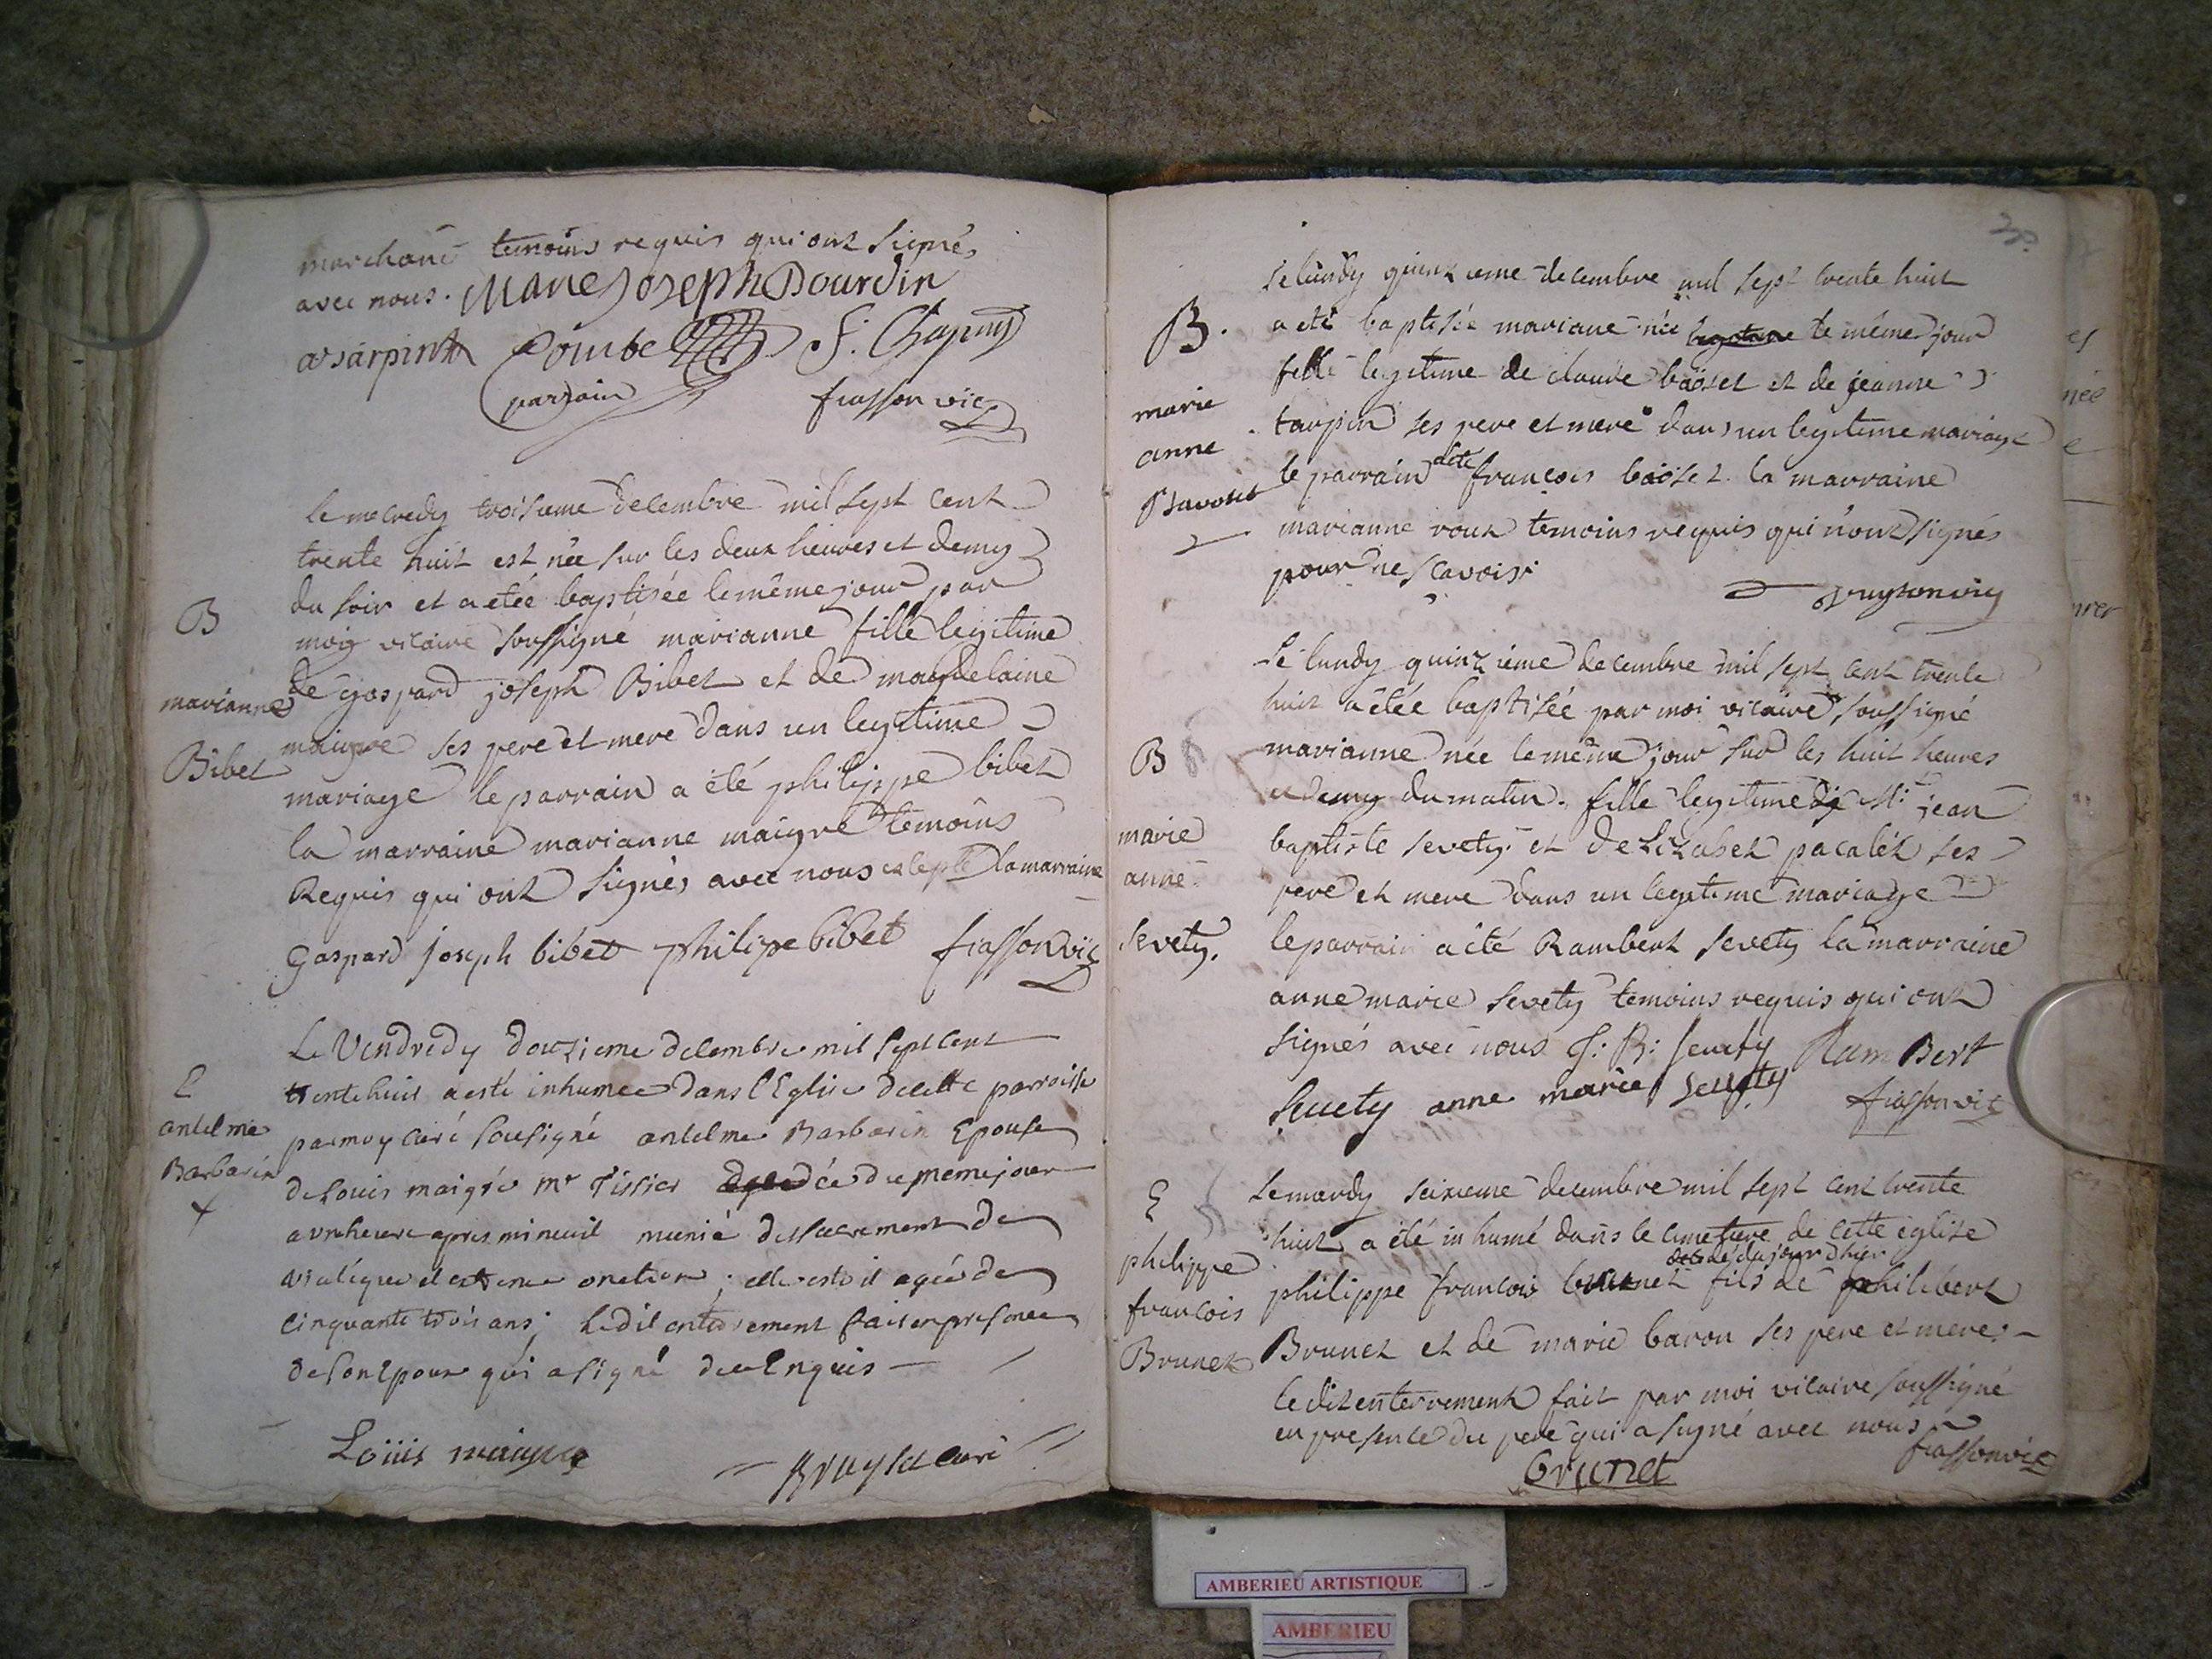 marchand temoins requis qui ont signés
avec nous. Marie Joseph Dourdin
Combe S. Chapuy
parrain frasson vic
le mecredy troisieme decembre mil sept cent
trente huit est née sur les deux heures et demy
du soir et a etée baptisée le même jour par
B
moy vicaire soussigné marianne fille legitime
de gaspard joseph Bibet et de magdelaine
marianne
maigre ses pere et mere dans un legitime
Bibet
mariage le parrain a été philippe bibet
la marraine marianne maigre temoins
Requis qui ont signés avec nous excepté la marraine
Gaspard joseph bibet philipe bibet frasson vic
Le Vendredy douzieme decembre mil sept cent
E
trente huit a esté inhumée dans l'Eglise de cette parroisse
antelme
par moy curé sousigné antelme Barbarin Epouse
Barbarin
de Louis maigre Mr Tissier décédée du meme jour
a une heure apres minuit munie des sacrement de
viatique et extreme onction; elle estoit agée de
cinquante trois ans; ledit enterrement fait en presence
de son Epoux qui a signé de ce Enquis
Loüis maigre Bruyset curé
le lundy quinzieme decembre mil sept trente huit
B.
a eté baptisée mariane née le même jour
fille legitime de claude baoset et de jeanne
marie
tarpin ses pere et mere dans un legitime mariage
anne
le parrain a été françois baoset la marraine
marianne roux temoins requis qui n'ont signés
pour ne scavoir
Le lundy quinzieme decembre mil sept cent trente
huit a étée baptisée par moi vicaire soussigné
B
marianne née le même jour sur les huit heures
et demy du matin. fille legitime de Sr. jean
marie
baptiste sevety et de Lizabet pacalet ses
anne
pere et mere dans un legitime mariage
sevety.
le parrain a été Rambert sevety la marraine
anne marie sevety temoins requis qui ont
signés avec nous J: B: sevety RamBert
sevety anne marie sevety frasson vic
E
Le mardy seizieme decembre mil sept cent trente
huit a été inhumé dans le cimetiere de cette eglise
philippe
décédé du jour d'hier
philippe francois brunet fils de philibert
francois
Brunet
Brunet et de marie baron ses pere et mere
le dit enterrement fait par moi vicaire soussigné
en presence du pere qui a signé avec nous
frasson vic
brunet
AMBERIEU ARTISTIQUE
AMBERIEU